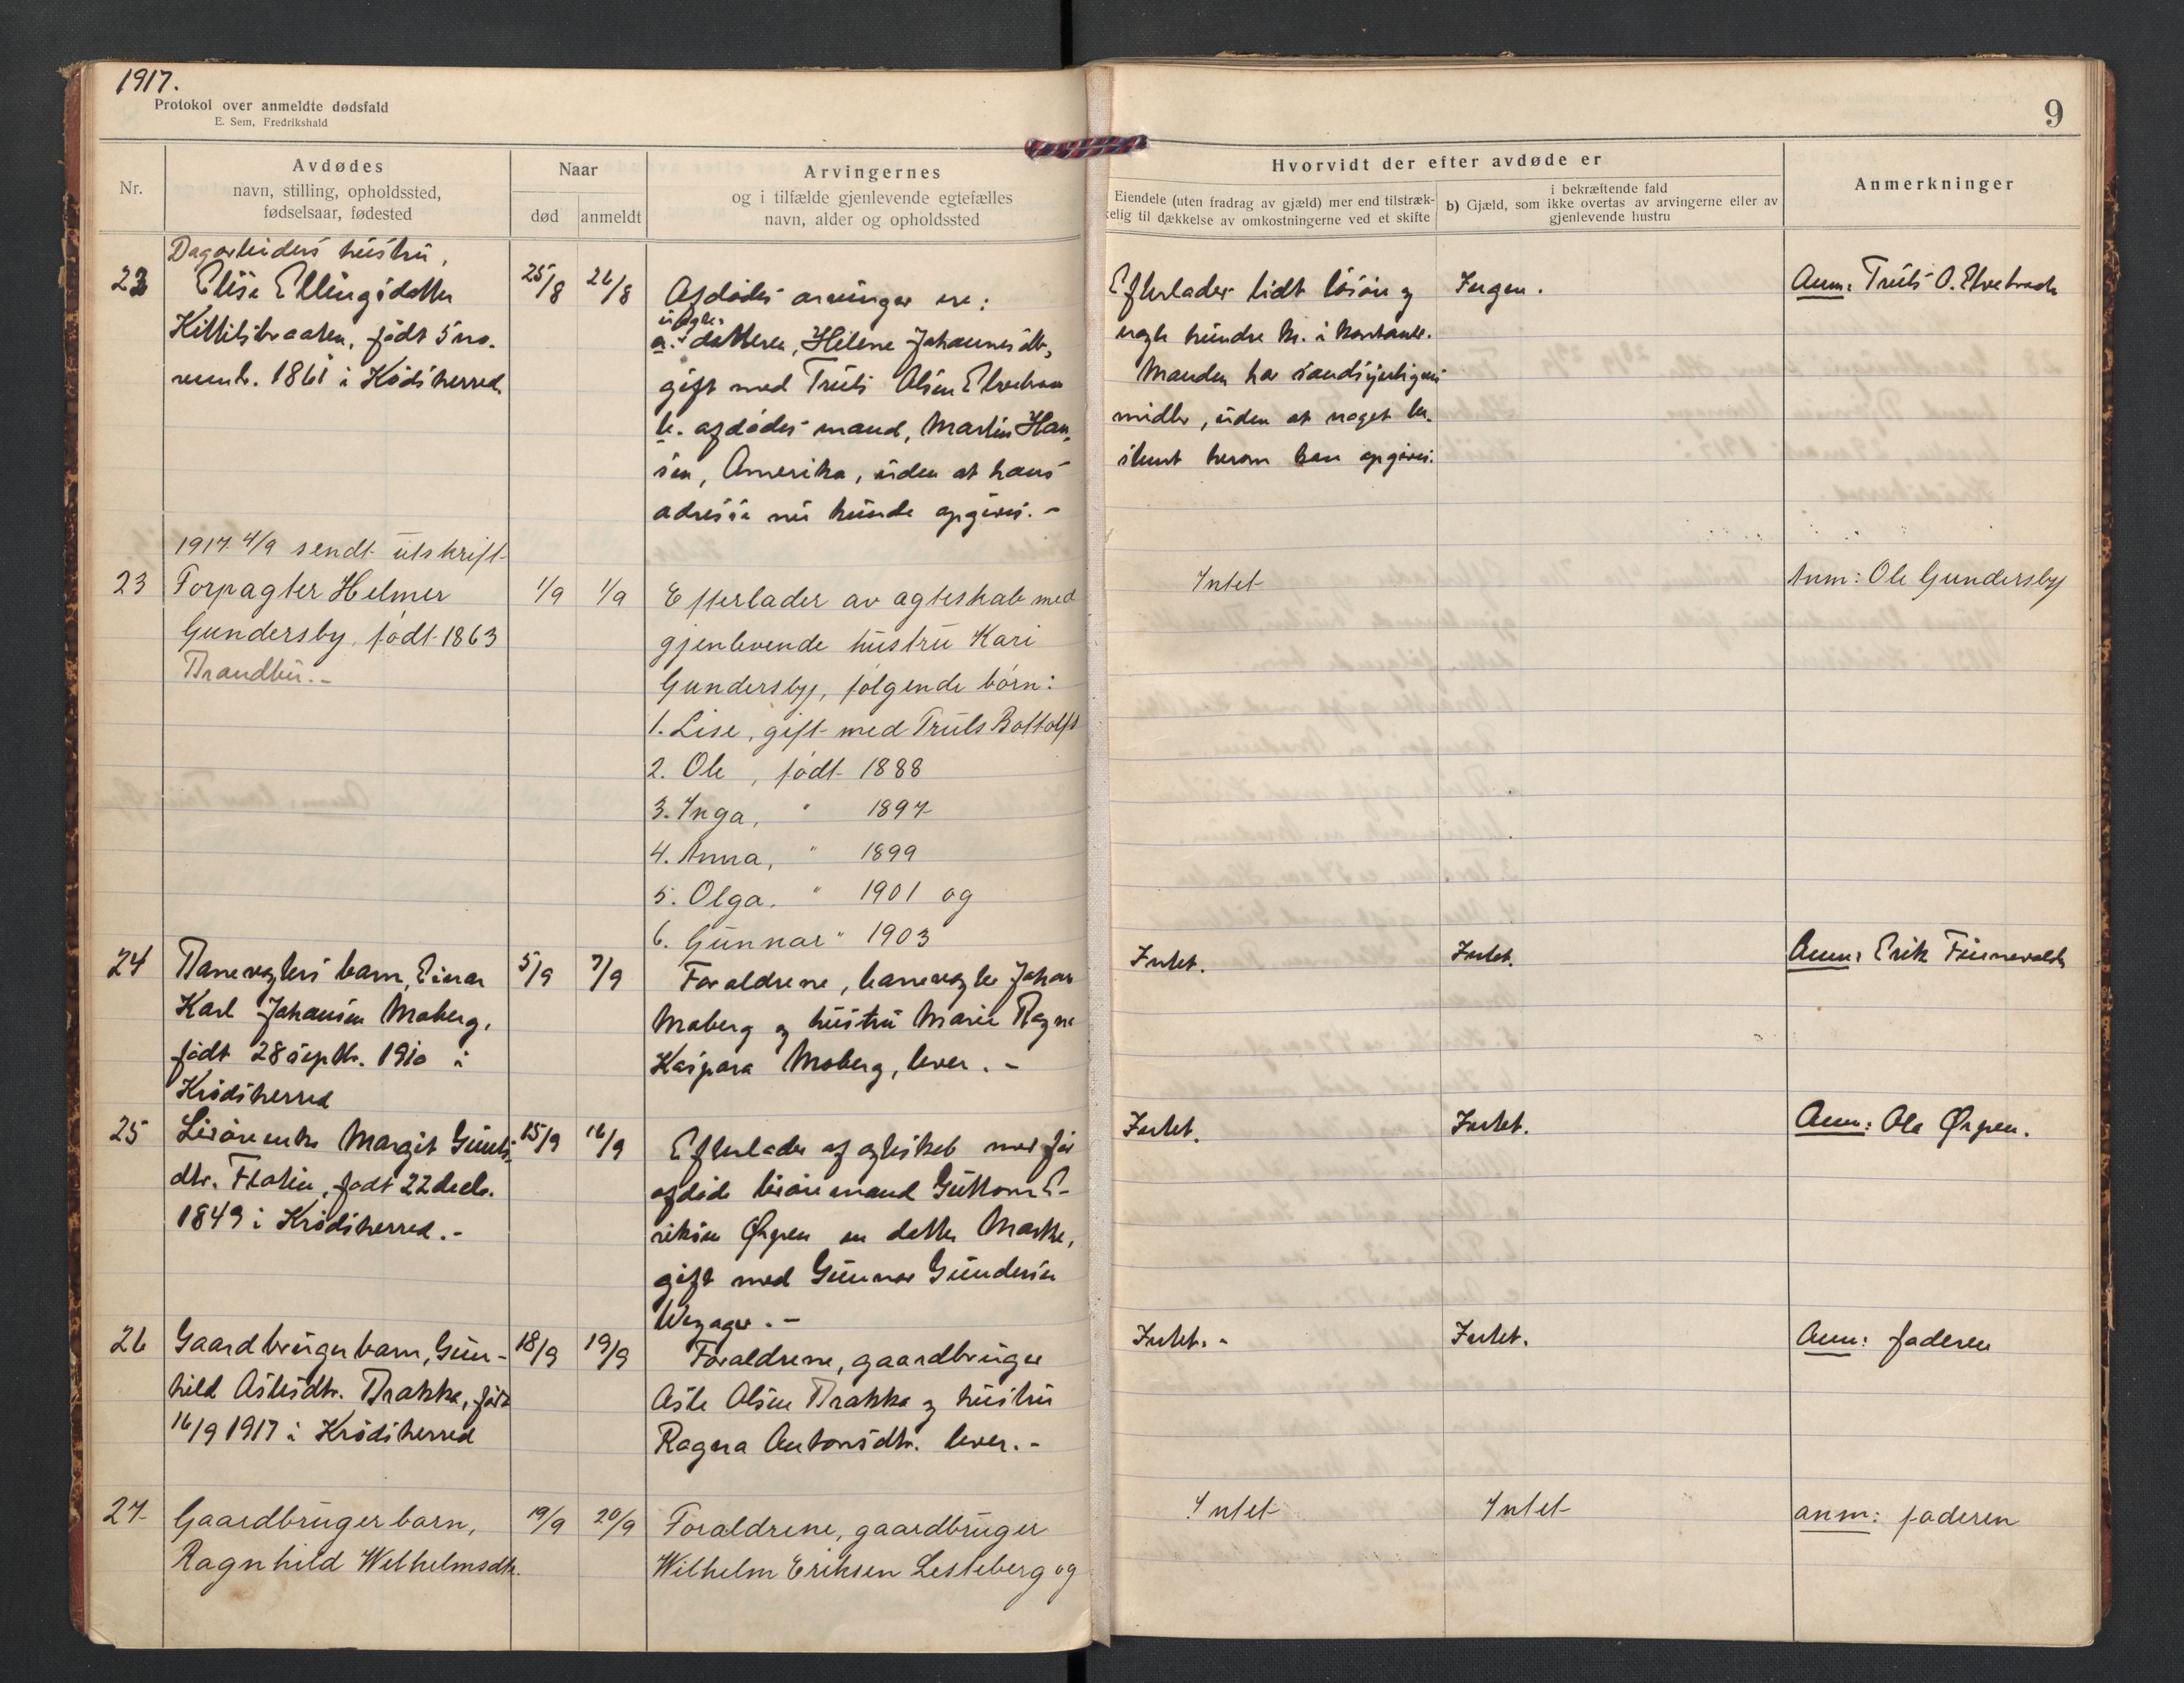 1917.
Protokol over anmeldte dødsfald
E. Sem, Fredrikshald
9
Nr.
Avdødes
navn, stilling, opholdssted,
fødselsaar, fødested
Naar
død
anmeldt
Arvingernes
og i tilfælde gjenlevende egtefælles
navn, alder og opholdssted
Hvorvidt der efter avdøde er
Eiendele (uten fradrag av gjæld) mer end tilstræk-
kelig til dækkelse av omkostningerne ved et skifte
i bekræftende fald
b) Gjæld, som ikke overtas av arvingerne eller av
gjenlevende hustru
Anmerkninger
Dagarbeiders hustru,
23 Elise Ellingsdatter
Kittilsbraaten, født 5 no-
vemb. 1861 i Kødsherred
25/8
26/8
Afdødes arvinger ere:
uægte
a. datteren, Helene Johannesdtr,
gift med Truls Olsen
b. afdødes mand, Martin Han-
sen, Amerika, uden at hans
adresse nu kunde opgives. -
Efterlader lidt løsøre og
nogle hundre kr. i kontante.
Manden har sandsynligvis
midler, uden at noget be-
stemt herom kan opgives.
Ingen.
Anm: Truls O.
1917 4/9 sendt utskrift
23 Forpagter Helmer
Gundersby, født 1863
Brandbu. -
1/9
1/9
Efterlader av agteskab med
gjenlevende hustru Kari
Gundersby, følgende børn:
1. Lise, gift med Truls Bottolfs
2. Ole, født 1888
3. Inga, " 1897
4. Anna, " 1899
5. Olga, " 1901 og
6. Gunnar " 1903
Intet
Anm: Ole Gundersby
24 Banevogters barn, Einar
Karl Johansen Moberg,
født 28 septb. 1910 i
Krødsherred
5/9
7/9
Forældrene, banevogter Johan
Moberg og hustru Marie Ragna
Kaspara Moberg, lever. -
Intet.
Intet.
Anm: Erik
25 Løsøreenke Margit Gunls-
dtr. Flaten, født 22 decb.
1849 i Krødsherred. -
15/9
16/9
Efterlader af egteskab med før
afdøde løsøremand Guttorm E-
riksen Ørpen en datter Marthe,
gift med Gunnar Gundersen
Intet.
Intet.
Anm: Ole Ørpen.
26 Gaardbrugerbarn, Gun-
hild Aslesdtr. Brakka, født
16/9 1917 i Krødsherred
18/9
19/9
Forældrene, gaardbruger
Asle Olsen Brakka og hustru
Ragna Antonsdtr. lever. -
Intet. -
Intet.
Anm: faderen
27 Gaardbrugerbarn,
Ragnhild Welhelmsdtr.
19/9
20/9
Forældrene, gaardbruger
Wilhelm Eriksen Lesteberg og
Intet
Intet
anm: faderen